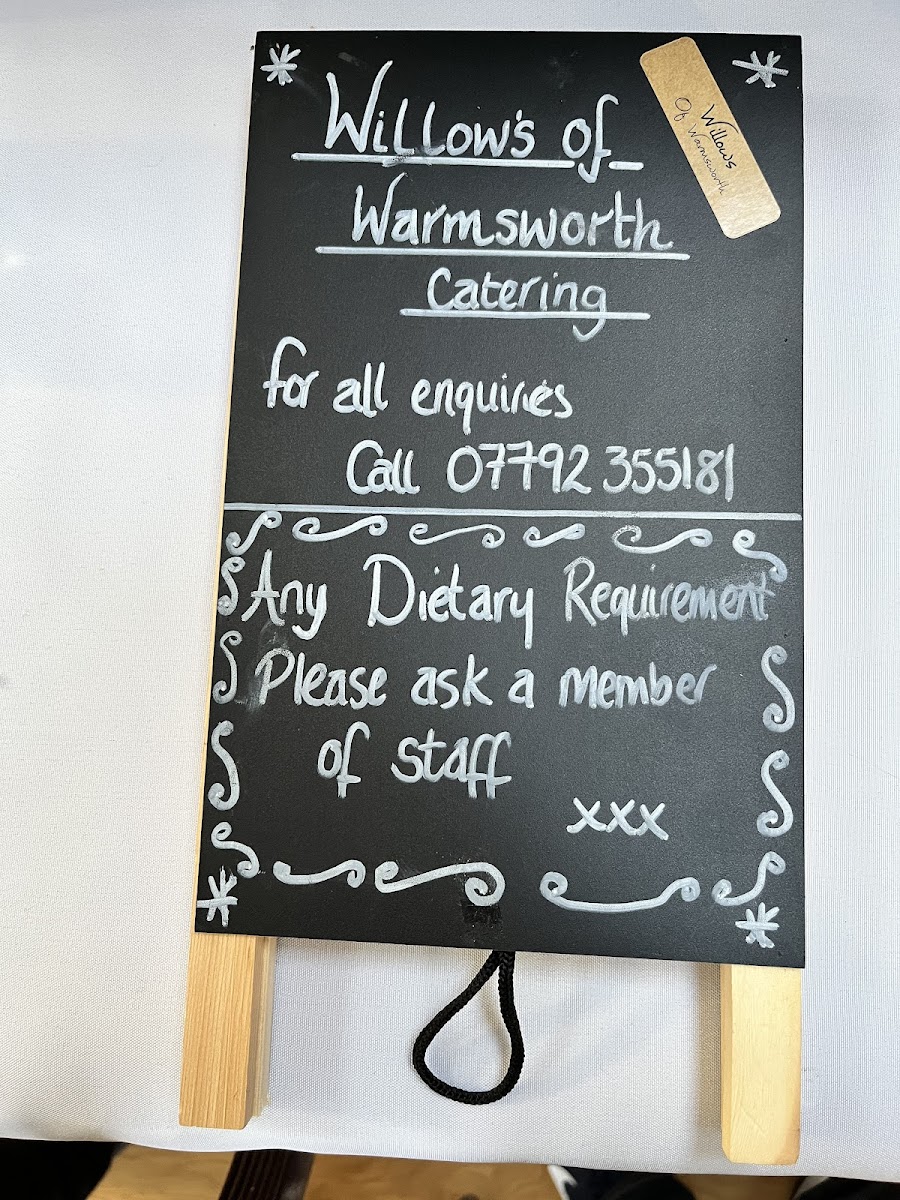 Willow's of
Warmsworth
Catering
for all enquiries
Call 07792 355181
Any Dietary Requirement
Please ask a member
of staff
xxx
Willows
Of Warmsworth